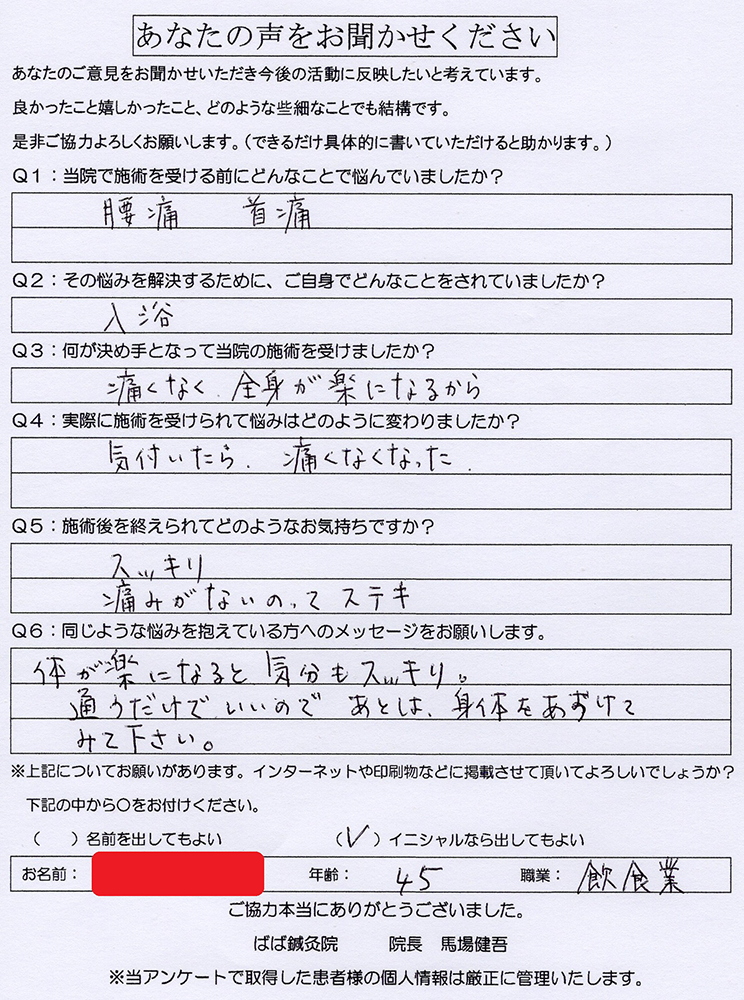 あなたの声をお聞かせください
あなたのご意見をお聞かせいただき今後の活動に反映したいと考えています。
良かったこと嬉しかったこと、どのような些細なことでも結構です。
是非ご協力よろしくお願いします。（できるだけ具体的に書いていただけると助かります。）
Q1：当院で施術を受ける前にどんなことで悩んでいましたか？
腰痛 首痛
Q2：その悩みを解決するために、ご自身でどんなことをされていましたか？
入浴
Q3：何が決め手となって当院の施術を受けましたか？
痛くなく、全身が楽になるから
Q4：実際に施術を受けられて悩みはどのように変わりましたか？
気付いたら、痛くなくなった。
Q5：施術後を終えられてどのようなお気持ちですか？
スッキリ
痛みがないのってステキ
Q6：同じような悩みを抱えている方へのメッセージをお願いします。
体が楽になると気分もスッキリ。
通うだけでいいので あとは、身体をあずけて
みて下さい。
※上記についてお願いがあります。インターネットや印刷物などに掲載させて頂いてよろしいでしょうか？
下記の中から○をお付けください。
（ ）名前を出してもよい （✓）イニシャルなら出してもよい
お名前： 年齢： 45 職業： 飲食業
ご協力本当にありがとうございました。
ばば鍼灸院 院長 馬場健吾
※当アンケートで取得した患者様の個人情報は厳正に管理いたします。